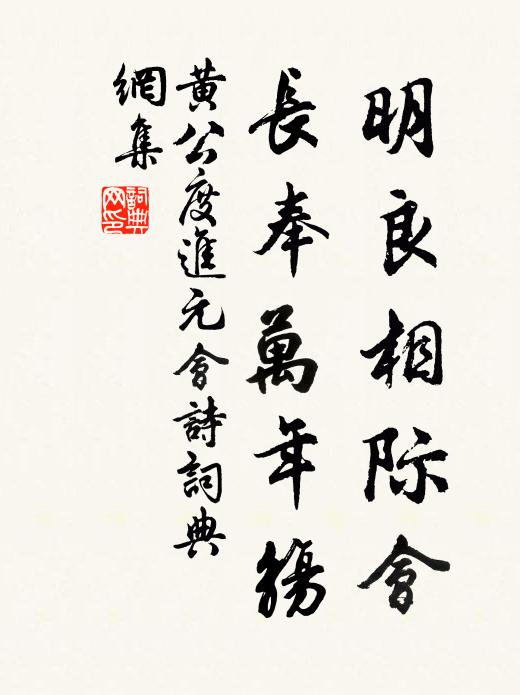 明良相际會
長奉萬年觴
黄公度進元會詩詞典
網集
詞典
网印